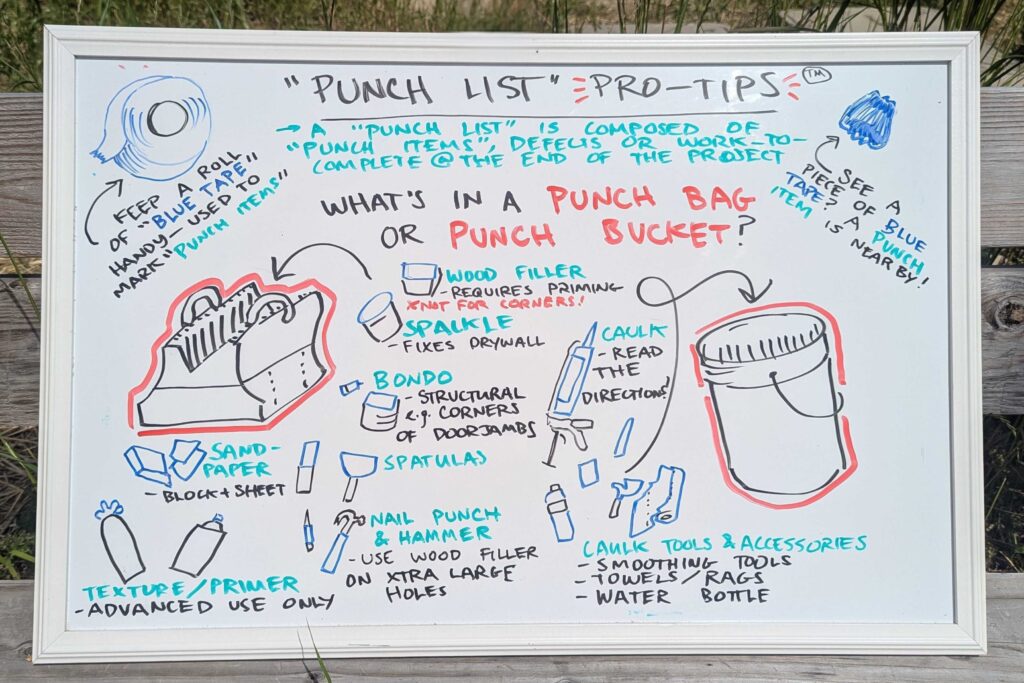 "PUNCH LIST" PRO-TIPS ™
→ A "PUNCH LIST" IS COMPOSED OF
"PUNCH ITEMS", DEFECTS OR WORK-TO-
COMPLETE @ THE END OF THE PROJECT
KEEP A ROLL
OF "BLUE TAPE"
HANDY - USED TO
MARK "PUNCH ITEMS"
SEE A
PIECE OF BLUE
TAPE? A PUNCH
ITEM IS NEARBY!
WHAT'S IN A PUNCH BAG
OR PUNCH BUCKET?
WOOD FILLER
- REQUIRES PRIMING
*NOT FOR CORNERS!
SPACKLE
- FIXES DRYWALL
BONDO
- STRUCTURAL
e.g. CORNERS
OF DOORJAMBS
CAULK
- READ
THE
DIRECTIONS!
SAND-
PAPER
- BLOCK + SHEET
SPATULAS
NAIL PUNCH
& HAMMER
- USE WOOD FILLER
ON XTRA LARGE
HOLES
TEXTURE/PRIMER
- ADVANCED USE ONLY
CAULK TOOLS & ACCESSORIES
- SMOOTHING TOOLS
- TOWELS/RAGS
- WATER BOTTLE